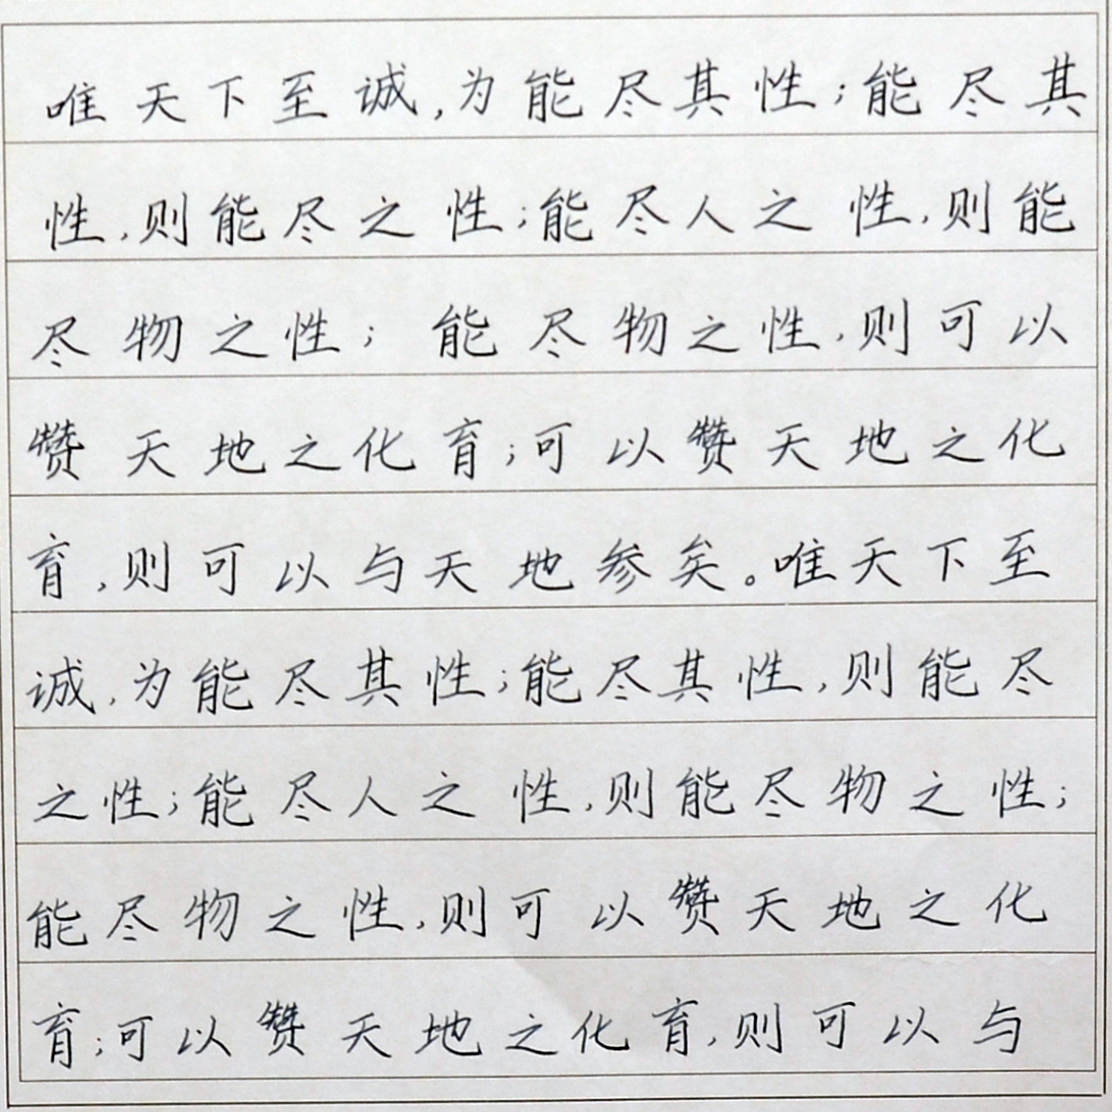 唯天下至诚,为能尽其性;能尽其
性,则能尽之性;能尽人之性,则能
尽物之性;能尽物之性,则可以
赞天地之化育;可以赞天地之化
育,则可以与天地参矣。唯天下至
诚,为能尽其性;能尽其性,则能尽
之性;能尽人之性,则能尽物之性;
能尽物之性,则可以赞天地之化
育;可以赞天地之化育,则可以与